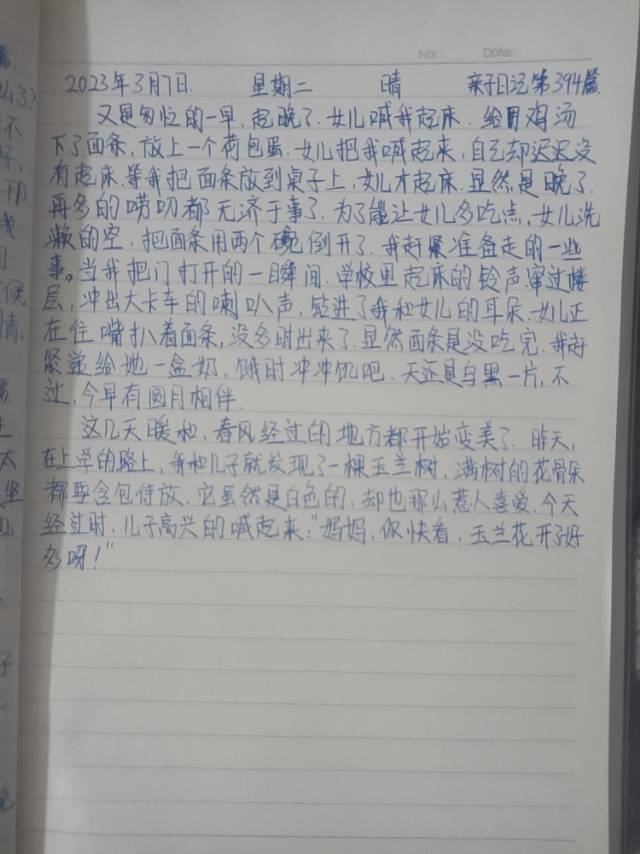 No:  Date:
2023年3月7日  星期二  晴  亲子日记第394篇
又是匆忙的一早，起晚了，女儿喊我起床，给用鸡汤
下了面条，放上一个荷包蛋，女儿把我喊起来，自己却迟迟没
有起床，等我把面条放到桌子上，女儿才起床，显然是晚了，
再多的唠叨都无济于事了，为了能让女儿多吃点，女儿洗
漱的空，把面条用两个碗倒开了，我赶紧准备走的一些
事。当我把门打开的一瞬间，学校里起床的铃声窜过楼
层，冲出大卡车的喇叭声，钻进了我和女儿的耳朵，女儿正
在往嘴扒着面条，没多时出来了，显然面条是没吃完，我赶
紧递给她一盒奶，饿时冲冲饥吧，天还是乌黑一片，不
过，今早有圆月相伴。
这几天暖和，春风经过的地方都开始变美了，昨天，
在上学的路上，我和儿子就发现了一棵玉兰树，满树的花骨朵
都要含包待放，它虽然是白色的，却也那么惹人喜爱，今天
经过时，儿子高兴的喊起来："妈妈，你快看，玉兰花开了好
多呀！"